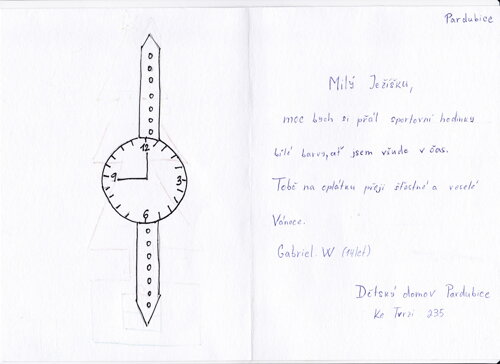 12
9
3
6
Pardubice
Milý Ježíšku,
moc bych si přál sportovní hodinky
bílé barvy, ať jsem všude v čas.
Tobě na oplátku přeji šťastné a veselé
Vánoce.
Gabriel. W (14let)
Dětský domov Pardubice
Ke Tvrzi 235